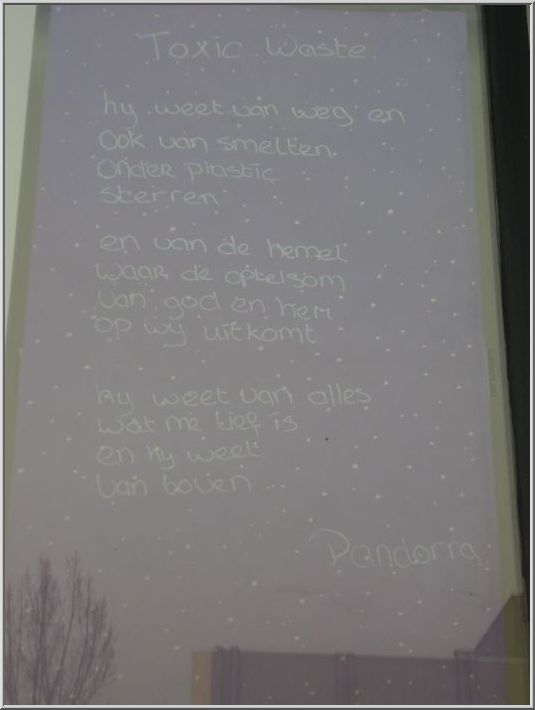 Toxic Waste
hy weet van weg en
ook van smelten
onder plastic
sterren
en van de hemel
waar de optelsom
van god en hem
op wy uitkomt
hy weet van alles
wat me lief is
en hy weet
van boven ...
Pandorra